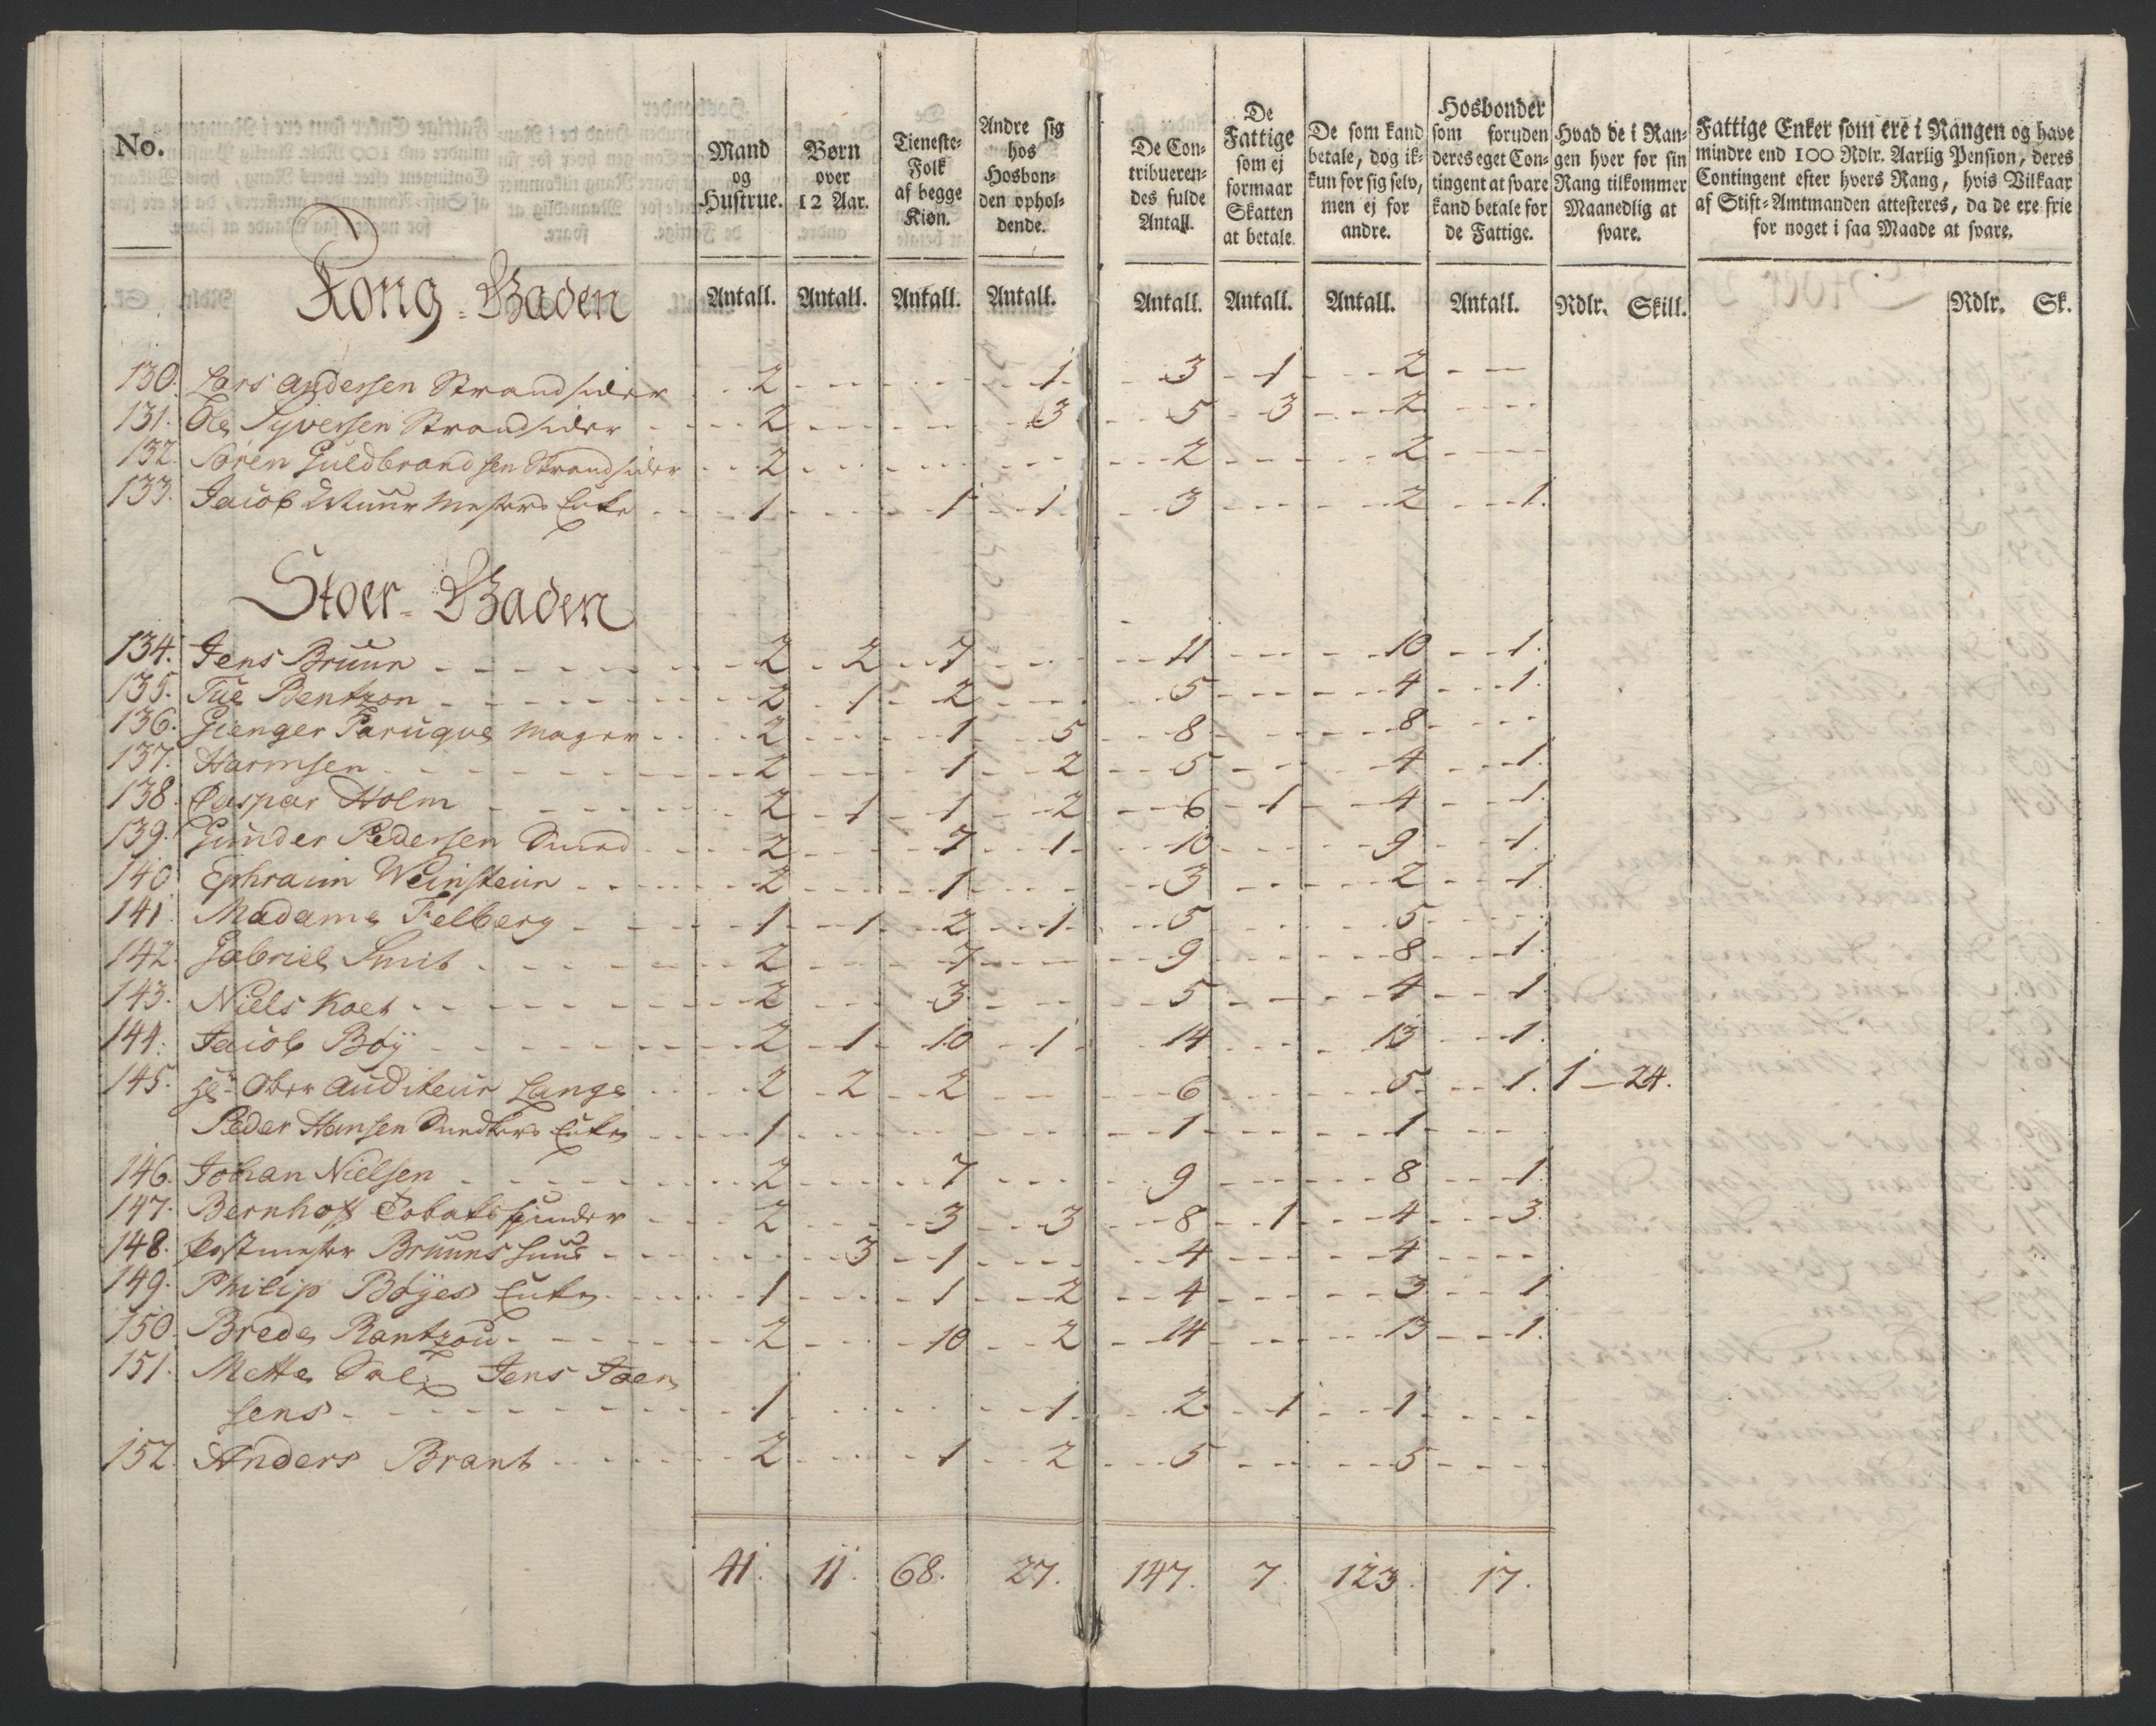 No.
Mand og Hustrue.
Børn over 12 Aar.
Tieneste-Folk af begge Kiøn.
Andre sig hos Hosbonden ophol-dende.
De Con-tribueren-des fulde Antall.
De Fattige som ej formaar Skatten at betale
De som kand betale, dog ik-kun for sig selv, men ej for andre.
Hosbonder som foruden deres eget Con-tingent at svare kand betale for de Fattige.
Hvad de i Ran-gen hver for sin Rang tilkommer Maanedlig at svare.
Fattige Enker som ere i Rangen og have mindre end 100 Rdlr. Aarlig Pension, deres Contingent efter hvers Rang, hvis Vilkaar af Stift-Amtmanden attesteres, da de ere frie for noget i saa Maade at svare.
Antall. Antall. Antall. Antall. Antall. Antall. Antall. Antall. Rdlr. Skill. Rdlr. Sk.
Kong-Gaden
130. Lars Andersen Strandsider 2 1 3 1 2
131. Ole Syversen Strandsider 2 3 5 3 2
132. Søren Guldbrandsen Strandsider 2 2 2
133. Jacob Muur Mesters Enke 1 1 1 3 2 1.
Stoer-Gaden
134. Jens Bruun 2 2 7 11 10 1.
135. Tue Bentzon 2 1 2 5 4 1.
136. Gienger Paruqve Mager 2 1 5 8 8
137. Harmsen 2 1 2 5 4 1.
138. Caspar Holm 2 1 1 2 6 1 4 1.
139. Gunder Pedersen Smed 2 7 1 10 9 1.
140 Ephraim Weinsteun 2 1 3 2 1.
141. Madame Felberg 1 1 2 1 5 5
142. Gabriel Smit 2 7 9 8 1.
143. Niels Koet 2 3 5 4 1
144. Jacob Bøÿ 2 1 10 1 14 13 1.
145. Hr. Ober Auditeur Lange 2 2 2 6 5 1. 1 — 24.
Peder Hansen Snedkers Enke 1 1 1
146. Johan Nielsen 2 7 9 8 1
147. Bernhoft Tobakspinder 2 3 3 8 1 4 3.
148. Postmester Bruuns Huus 3 1 4 4
149. Philip Bøÿes Enke 1 1 2 4 3 1
150. Brede Rantzou 2 10 2 14 13 1.
151. Mette Sal: Jens Joen
sens 1 1 2 1 1
152. Anders Brant 2 1 2 5 5
41. 11. 68. 27. 147. 7 123. 17.